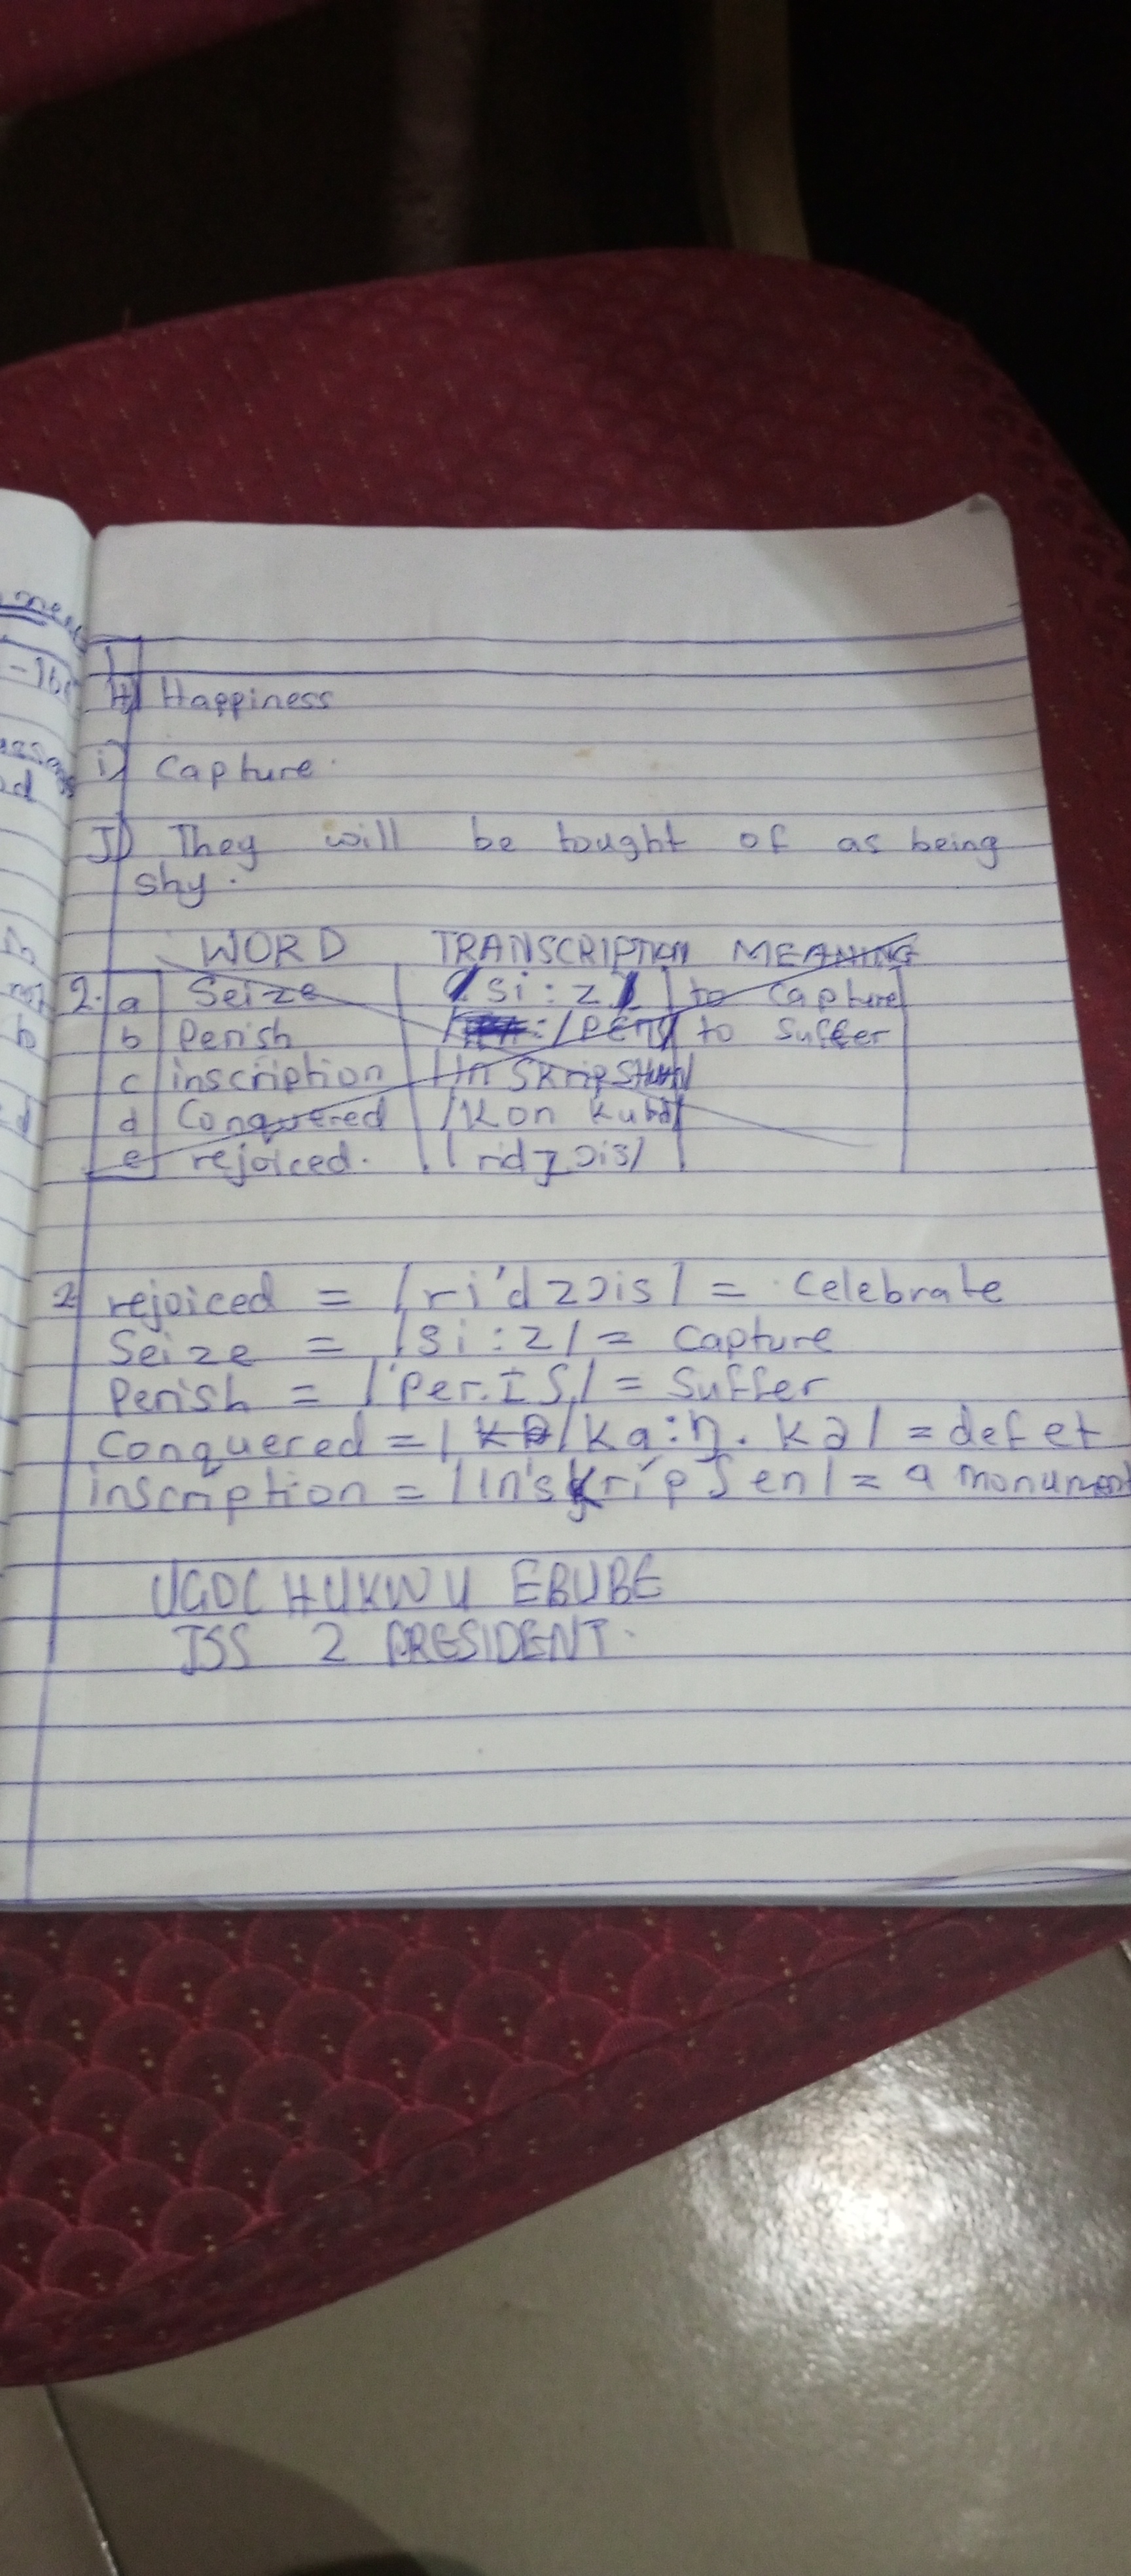 H) Happiness
i) Capture.
J) They will be tought of as being
shy.
WORD TRANSCRIPTION MEANING
2. a Seize /si:z/ to capture
b Perish to suffer
c inscription
d Conquered
e rejoiced.
2 rejoiced = /ri'dzɔis/ = Celebrate
Seize = /si:z/ = Capture
Perish = /'per.IS/ = Suffer
Conquered = /ka:ŋ.kə/ = defet
inscription = /in'skripʃen/ = a monument
UGOCHUKWU EBUBE
JSS 2 PRESIDENT.